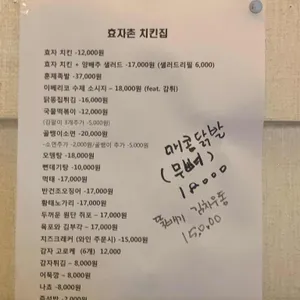 효자촌 치킨집
효자 치킨 -12,000원
효자 치킨 + 양배추 샐러드 -17,000원 (샐러드리필 6,000)
훈제족발 -37,000원
이베리코 수제 소시지 - 18,000원 (feat. 감튀)
닭똥집튀김 -16,000원
국물떡볶이 -12,000원
(김말이 3개추가 - 3,000원)
골뱅이소면 -20,000원
-소면추가 -2,000원/골뱅이 추가 - 5,000원
오뎅탕 -18,000원
뻔데기탕 -10,000원
먹태 -17,000원
반건조오징어 -17,000원
황태노가리 -17,000원
두꺼운 원단 쥐포 - 17,000원
육포와 김부각 - 17,000원
치즈크래커 (와인 주문시) -15,000원
감자 고로케 (6개) 12,000
감자튀김 - 8,000원
어묵깡 - 8,000원
나쵸 - 8,000원
매콤닭발
(무뼈)
18000
김치우동
15,000